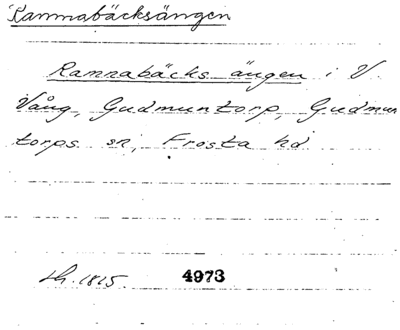 Rannabäcksängen
Rannabäcks ängen i V.
Vång, Gudmuntorp, Gudmun
torps sn, Frosta hd
Lh. 1815. 4973